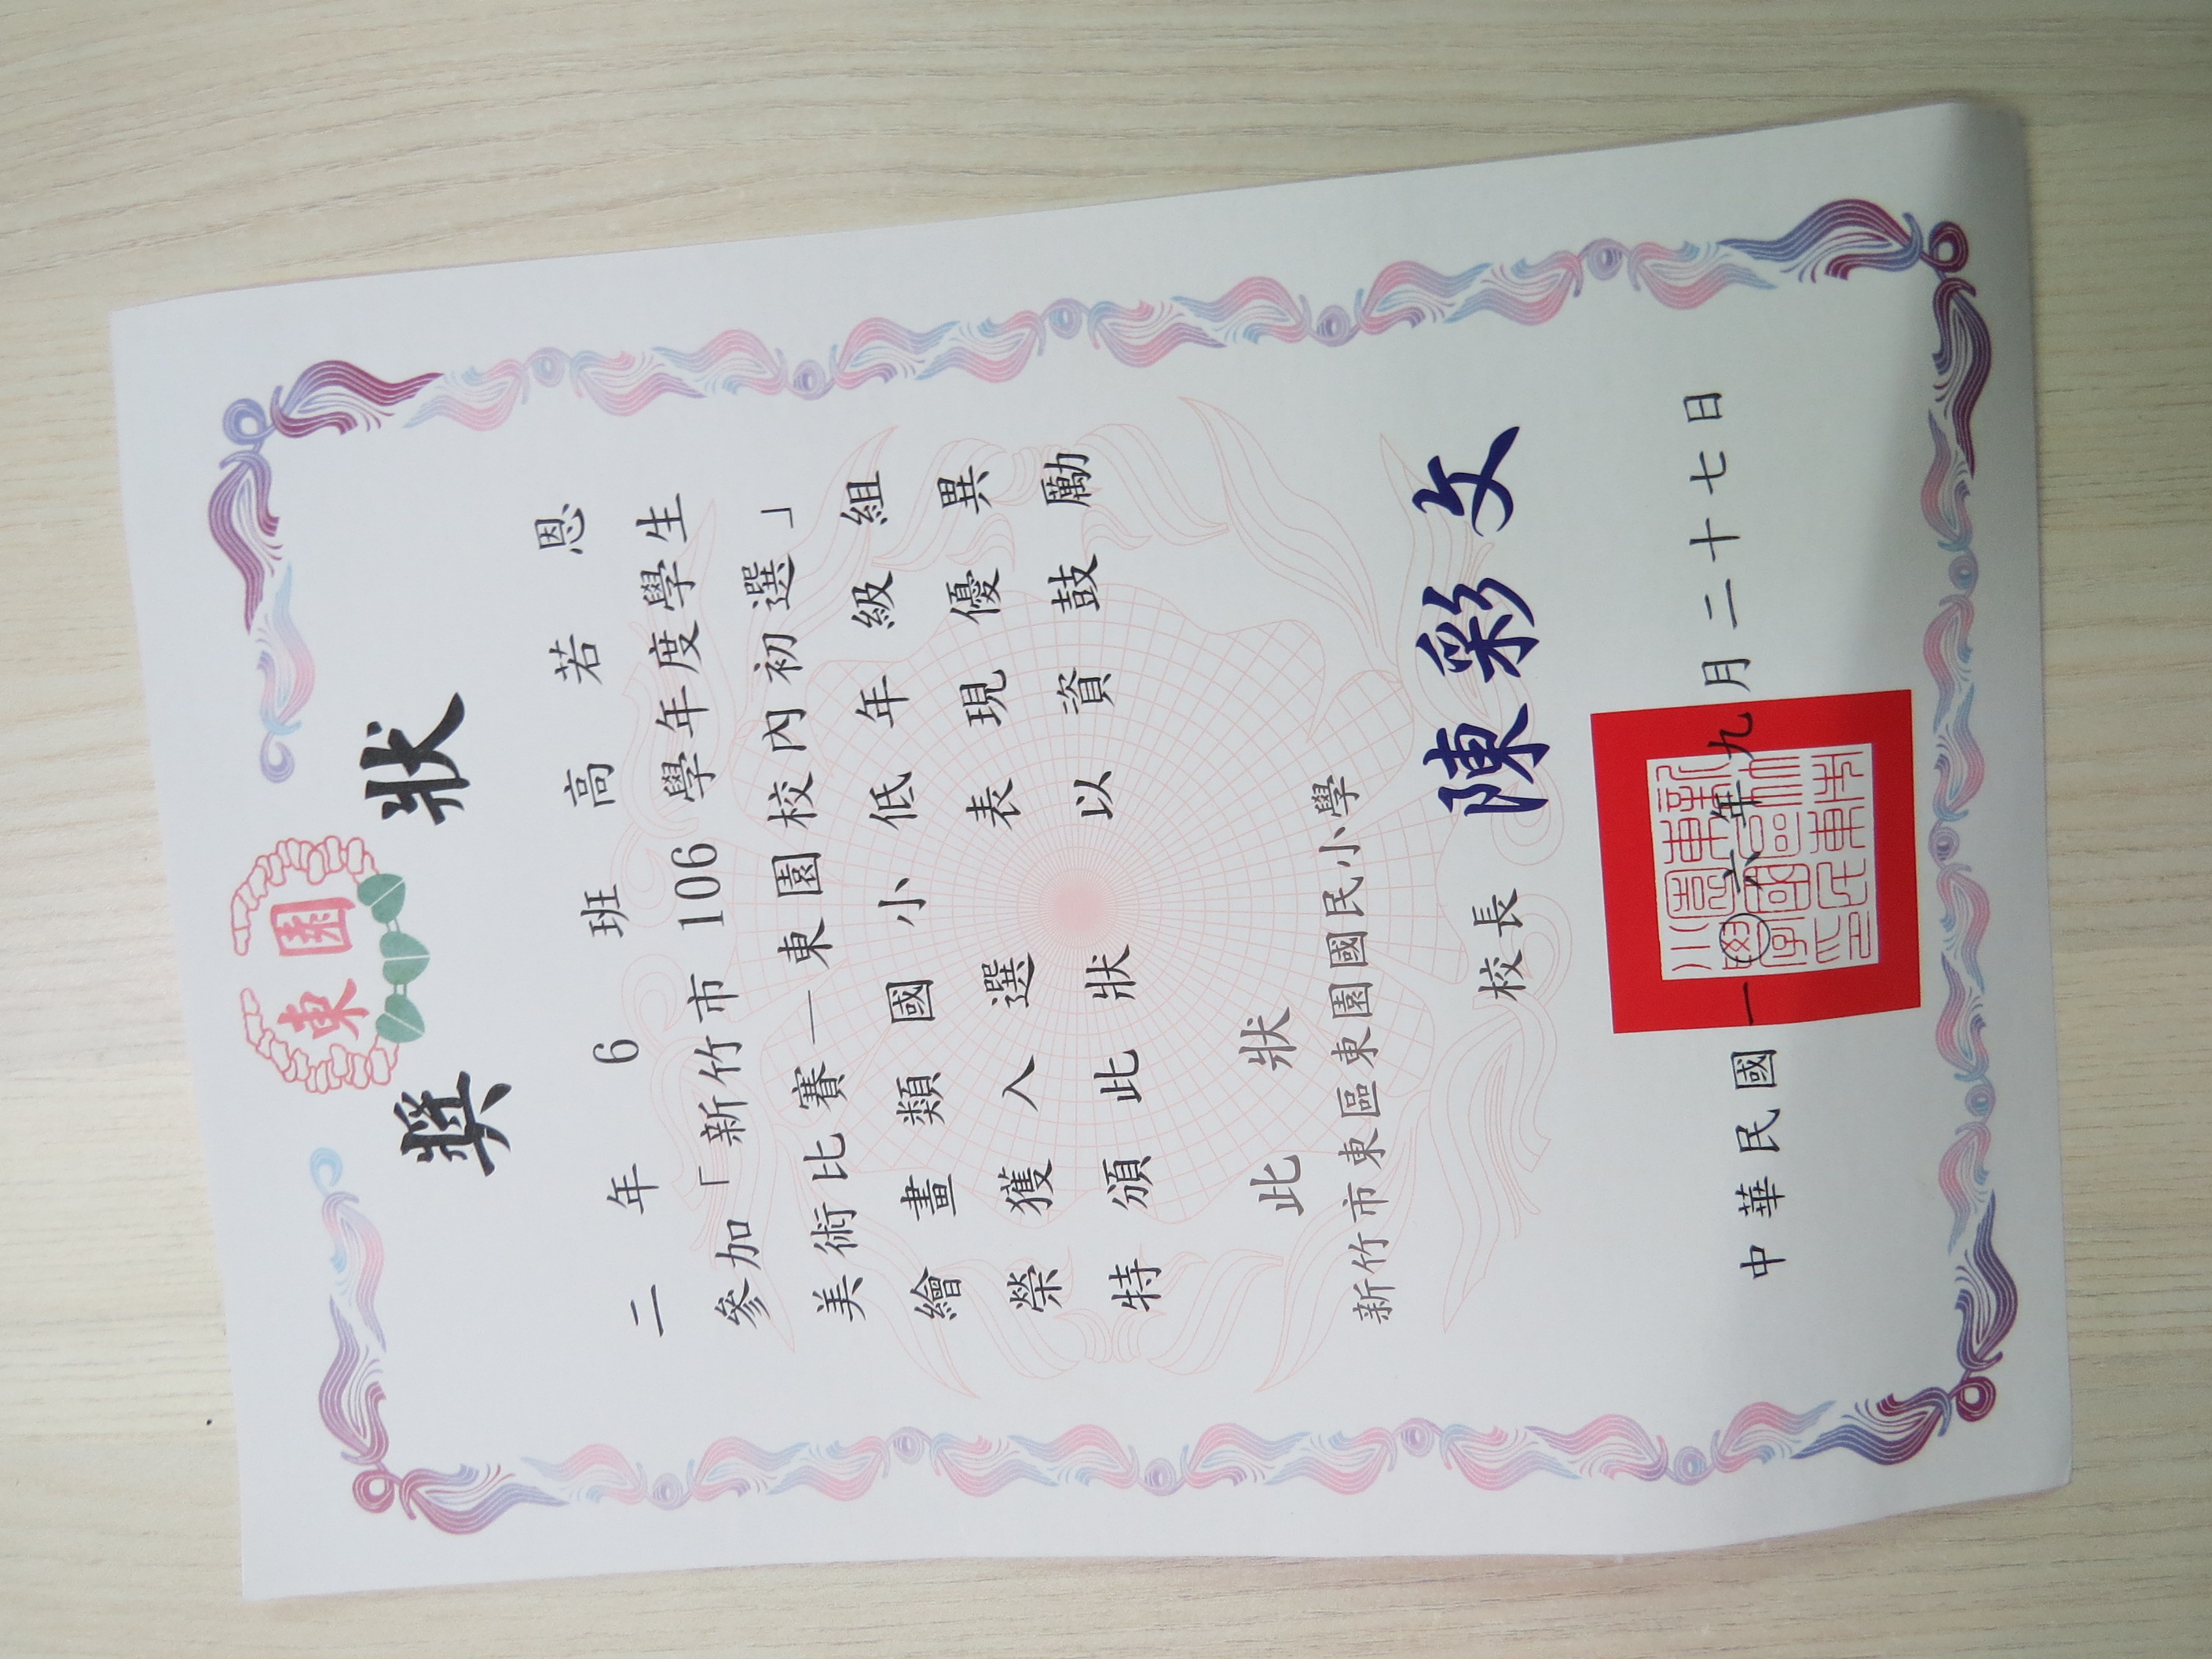 東園
獎狀
二年6班高若恩
參加「新竹市106學年度學生
美術比賽—東園校內初選」
繪畫類國小低年級組
榮獲入選表現優異
特頒此狀以資鼓勵
此狀
新竹市東區東園國民小學
校長 陳彩文
中華民國一〇六年九月二十七日